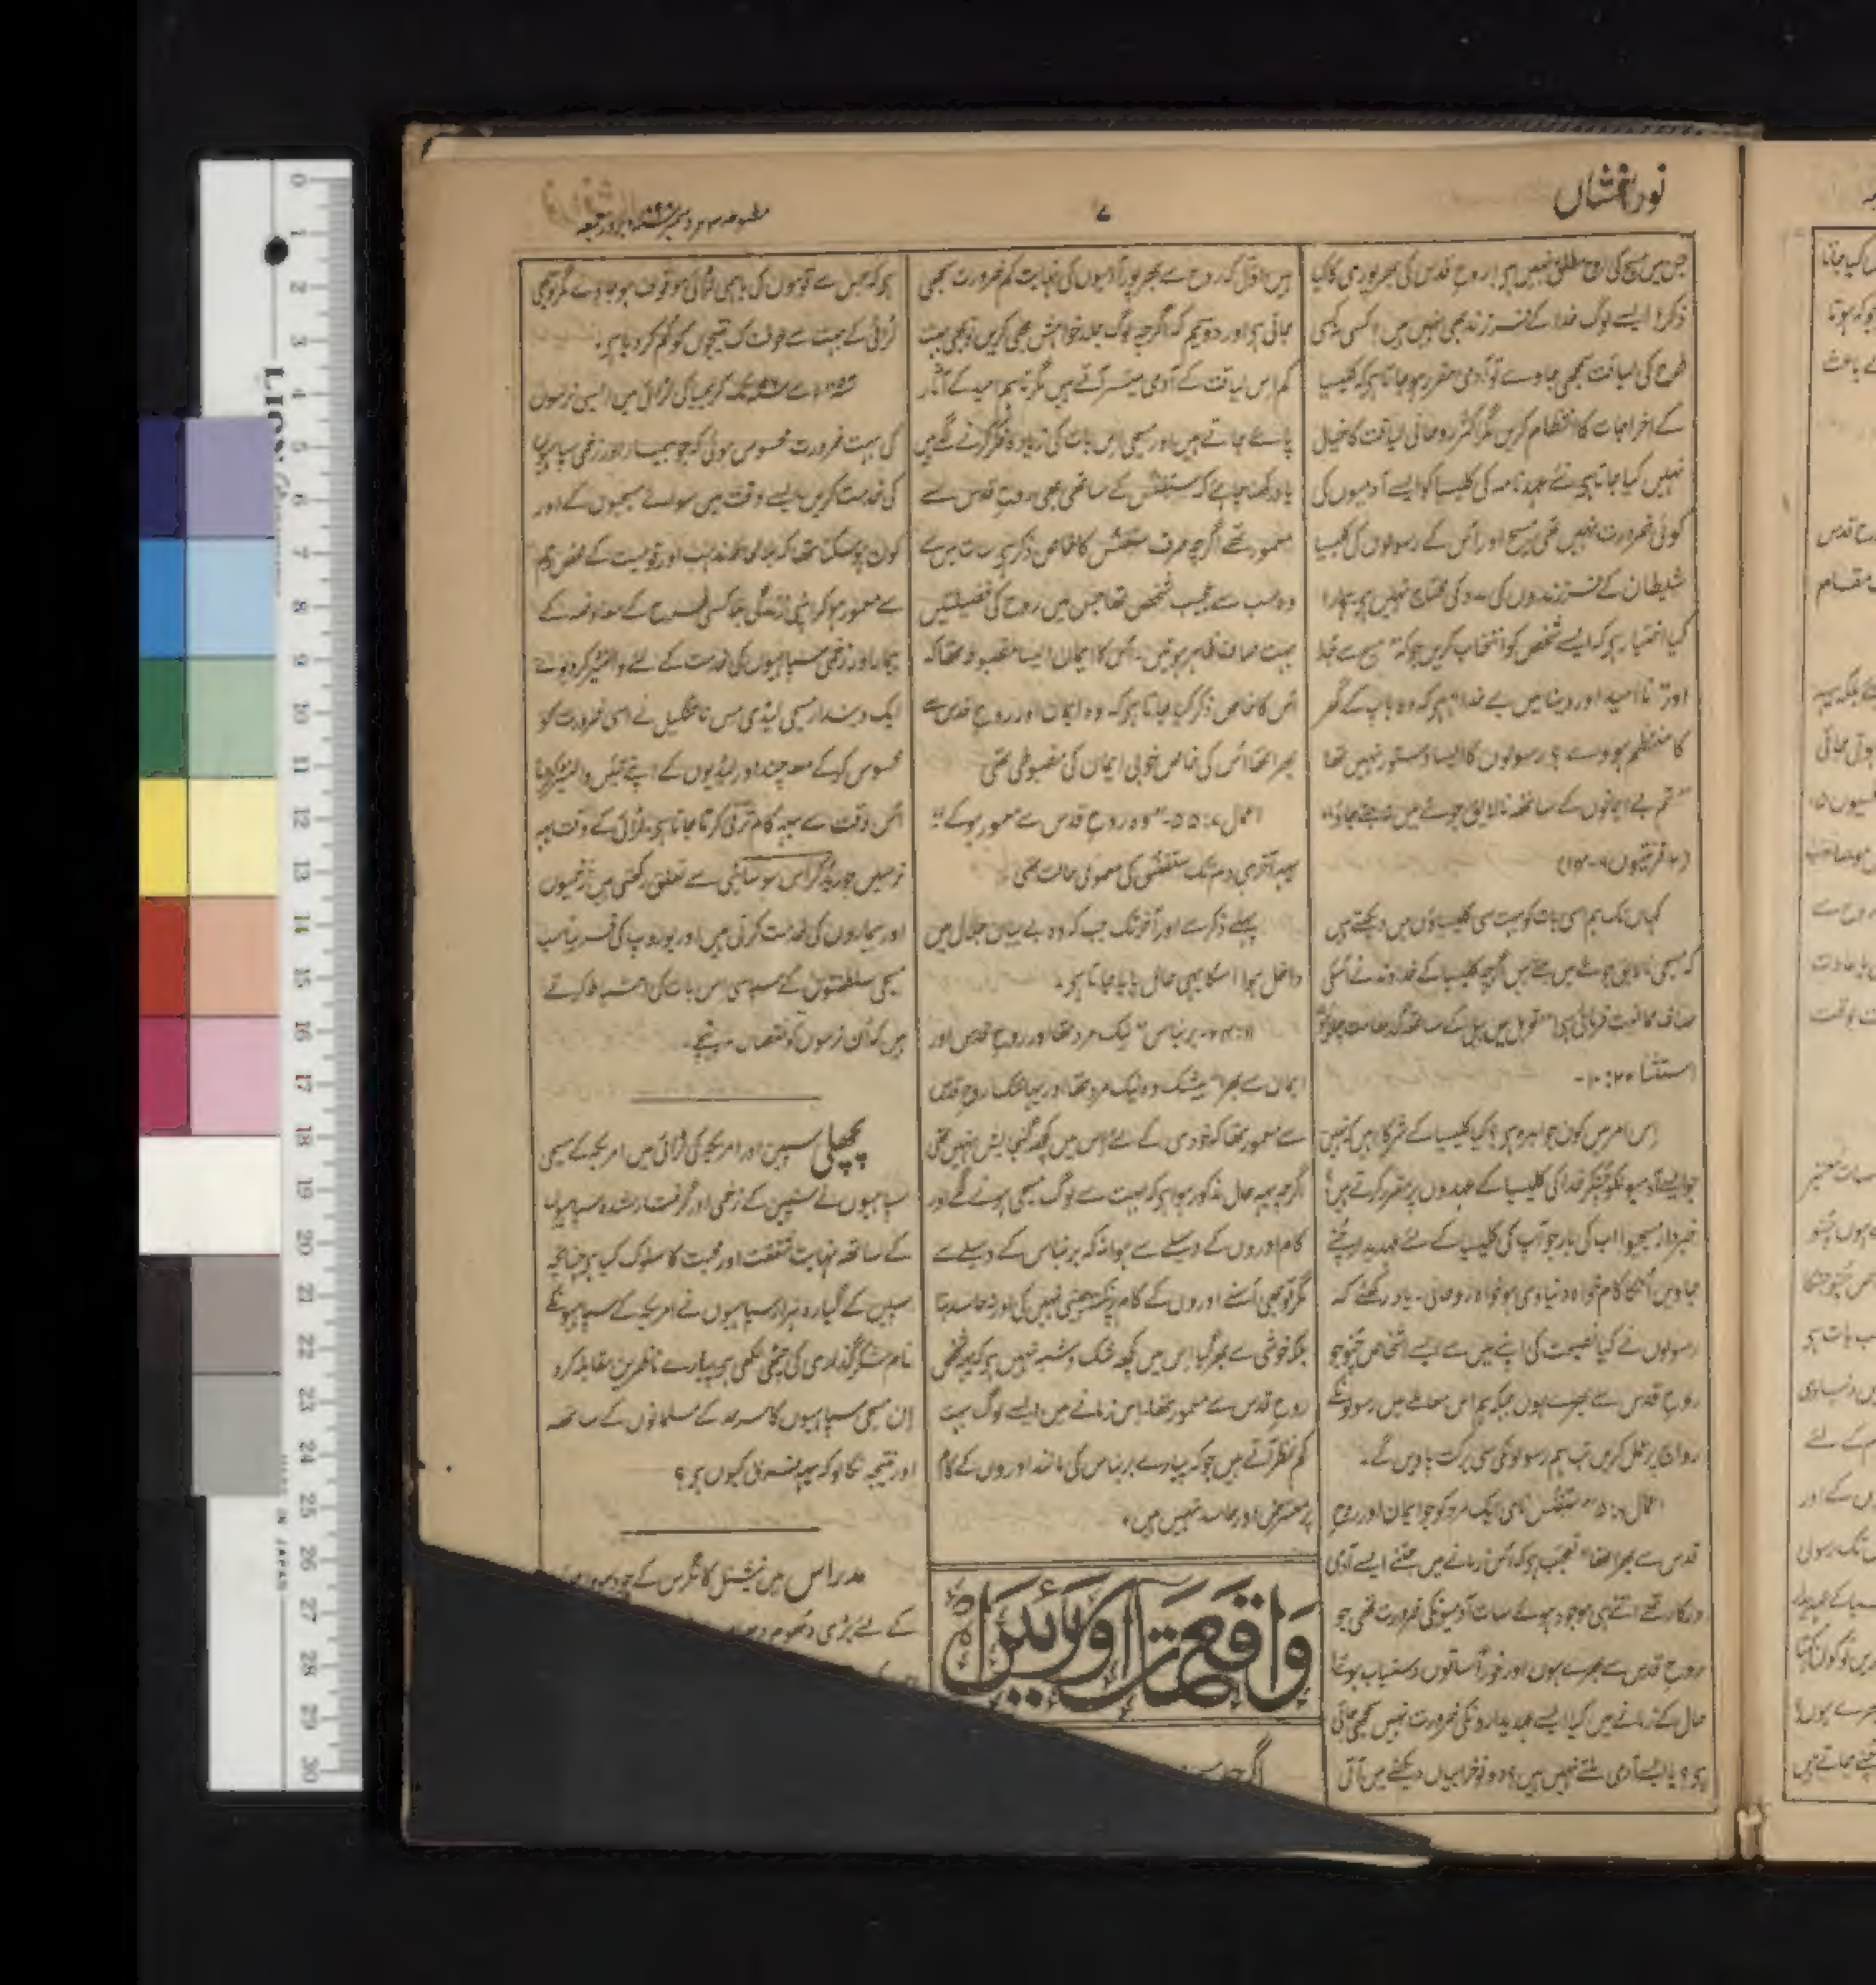 نور افشاں
۷
مطبوعہ ۳۰ دسمبر بروز جمعہ
جس میں مسیح کی روح مطلق نہیں ہی روح قدس کی بھرپوری کا کیا
ذکر! ایسے لوگ خدا کے فرزند بھی نہیں ہیں! کسی کسی
طرح کی لیاقت سمجھی جاوے تو آدمی مقرر ہو جاتا ہی کہ کلیسیا
کے اخراجات کا انتظام کریں مگر اکثر روحانی لیاقت کا خیال
نہیں کیا جاتا ہی نئے عہد نامہ کی کلیسیا کو ایسے آدمیوں کی
کوئی ضرورت نہیں تھی مسیح اور اُس کے رسولوں کی کلیسیا
شیطان کے فرزندوں کی مدد کی محتاج نہیں ہی ہمارا
کیا اختیار ہی کہ ایسے شخص کو انتخاب کریں جو کہ مسیح سے جُدا
اور نا اُمید اور دنیا میں بے خدا ہی کہ وہ باپ کے گھر
کا منتظم ہووے؟ رسولوں کا ایسا دستور نہیں تھا
"تم بے ایمانوں کے ساتھ نالایق جوئے میں مت جتے جاؤ"
(۲ قرنتیوں ۶-۱۴)
کہاں تک ہم اسی بات کو بہت سی کلیسیاؤں میں دیکھتے ہیں
کہ مسیحی نالایق جوئے میں جتے ہیں اگرچہ کلیسیا کے خداوند نے اُسکی
صاف ممانعت فرمائی ہی "تو ہل میں بیل کے ساتھ گدھا مت جوتیو"
استثنا ۲۲: ۱۰-
اِس امر میں کون جوابدہ ہی؟ کیا کلیسیا کے شرکا ہیں کہ نہیں
جو ایسے آدمیونکو چُنکر خدا کی کلیسیا کے عہدوں پر مقرر کرتے ہیں!
خبردار مسیحیو! اب کی بار جو آپ کی کلیسیا کے لئے عہدیدار چُنے
جاویں اُنکا کام خواہ دنیاوی ہو خواہ روحانی۔ یاد رکھئے کہ
رسولوں نے کیا نصیحت کی اپنے میں سے ایسے اشخاص چُنو جو
روح قدس سے بھرے ہوں جبکہ ہم اس معاملے میں رسولونکے
رواج پر عمل کریں تب ہم رسولونکی سی برکت پاویں گے۔
اعمال ۶: ۵ "ستیفنس نامی ایک مرد کو جو ایمان اور روح
قدس سے بھرا تھا" تعجب ہی کہ اُس زمانے میں جتنے ایسے آدمی
درکار تھے اتنے ہی موجود ہوئے سات آدمیونکی ضرورت تھی جو
روح قدس سے بھرے ہوں اور فوراً ساتوں دستیاب ہوئے
حال کے زمانے میں کیا ایسے عہدیدارونکی ضرورت نہیں سمجھی جاتی
ہی؟ یا ایسے آدمی ملتے نہیں ہیں؟ دونو خرابیاں دیکھنے میں آتی
ہیں اوّل کہ روح سے بھرپور آدمیوں کی نہایت کم ضرورت سمجھی
جاتی ہی اور دویم کہ اگرچہ لوگ جلد خواہش بھی کریں تو بھی بہت
کم اِس لیاقت کے آدمی میسر آتے ہیں مگر تو بھی اُمید کے آثار
پائے جاتے ہیں اور مسیحی اِس بات کی زیادہ فکر کرنے لگے ہیں
یاد رکھنا چاہئے کہ ستیفنس کے ساتھی بھی روح قدس سے
معمور تھے اگرچہ صرف ستیفنس کا خاص ذکر ہی سات میں سے
وہ سب سے عجیب شخص تھا جس میں روح کی فضیلتیں
بہت صاف ظاہر ہوئیں۔ اُس کا ایمان ایسا مضبوط تھا کہ
اُس کا خاص ذکر کیا جاتا ہی کہ وہ ایمان اور روح قدس سے
بھرا تھا اُس کی خاص خوبی ایمان کی مضبوطی تھی
اعمال ۷: ۵۵- "وہ روح قدس سے معمور ہو کے"
یہہ آخری دم تک ستیفنس کی معمولی حالت تھی۔
پہلے ذکر سے اور آخر تک جب کہ وہ بے بیاں جلال میں
داخل ہوا اُسکا یہی حال پایا جاتا ہی۔
۱۱: ۲۴- برنباس "نیک مرد تھا اور روح قدس اور
ایمان سے بھرا" بیشک وہ نیک مرد تھا اور یہاں تک روح قدس
سے معمور تھا کہ خودی کے لئے اُس میں کچھ گنجایش نہیں تھی
اگرچہ یہہ حال مذکور ہوا ہی کہ بہت سے لوگ مسیحی ہونے لگے اور
کام اوروں کے وسیلے سے ہوا نہ کہ برنباس کے وسیلے سے
مگر تو بھی اُسنے اوروں کے کام پر نکتہ چینی نہیں کی اور نہ حاسد بنا
بلکہ خوشی سے بھر گیا اِس میں کچھ شک و شبہ نہیں ہی کہ یہ شخص
روح قدس سے معمور تھا۔ اِس زمانے میں ایسے لوگ بہت
کم نظر آتے ہیں جو کہ پیارے برنباس کی مانند اوروں کے کام
پر معترض اور حاسد نہیں ہیں۔
واقعات اور رائیں
اگرچہ
ہی کہ جس سے قوموں کی باہمی لڑائی موقوف ہو جاوے مگر تو بھی
لڑائی کے بہت سے خوفناک نتیجوں کو کم کر دیا ہی۔
سے تک کریمیا کی لڑائی میں ایسی نرسوں
کی بہت ضرورت محسوس ہوئی کہ جو بیمار اور زخمی سپاہیوں
کی خدمت کریں ایسے وقت میں سوائے مسیحیوں کے اور
کون ہو سکتا تھا کہ بلا لحاظ مذہب اور قومیت کے محض رحم
سے معمور ہو کر اپنی زندگی بلا کسی طرح کے معاوضہ کے
بیمار اور زخمی سپاہیوں کی خدمت کے لئے والنٹیر کر دیوے
ایک دیندار مسیحی لیڈی مس نائٹنگیل نے اسی ضرورت کو
محسوس کر کے معہ چند اور لیڈیوں کے اپنے تئیں والنٹیر کر دیا
اُس وقت سے یہہ کام ترقی کرتا جاتا ہی۔ لڑائی کے وقت یہہ
نرسیں جو ریڈ کراس سوسائٹی سے تعلق رکھتی ہیں زخمیوں
اور بیماروں کی خدمت کرتی ہیں اور یوروپ کی قریباً سب
مسیحی سلطنتوں کے سپاہی اِس بات کی احتیاط کرتے
ہیں کہ اُن نرسوں کو نقصان نہ پہنچے۔
پچھلی سپین اور امریکہ کی لڑائی میں امریکہ کے مسیحی
سپاہیوں نے سپین کے زخمی اور گرفتار شدہ سپاہیوں
کے ساتھ نہایت شفقت اور محبت کا سلوک کیا ہی چنانچہ
سپین کے گیارہ ہزار سپاہیوں نے امریکہ کے سپاہیونکے
نام شکرگذاری کی چٹھی لکھی ہی پیارے ناظرین مقابلہ کرو
اِن مسیحی سپاہیوں کا سرحد کے مسلمانوں کے ساتھ
اور نتیجہ نکالو کہ یہہ فرق کیوں ہی؟
مدراس میں نیشنل کانگرس کے
کے لئے بڑی دھوم